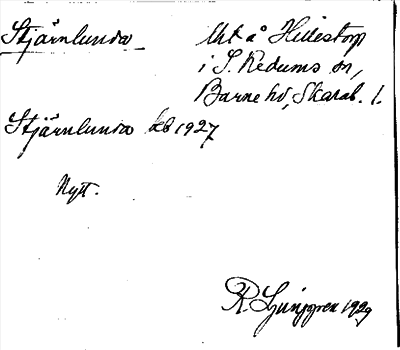 Stjärnlunda
Uht å Hillestorp
i S. Kedums sn,
Barne hd, Skarab. l.
Stjärnlunda kb 1927
Nytt.
R Ljunggren 1929